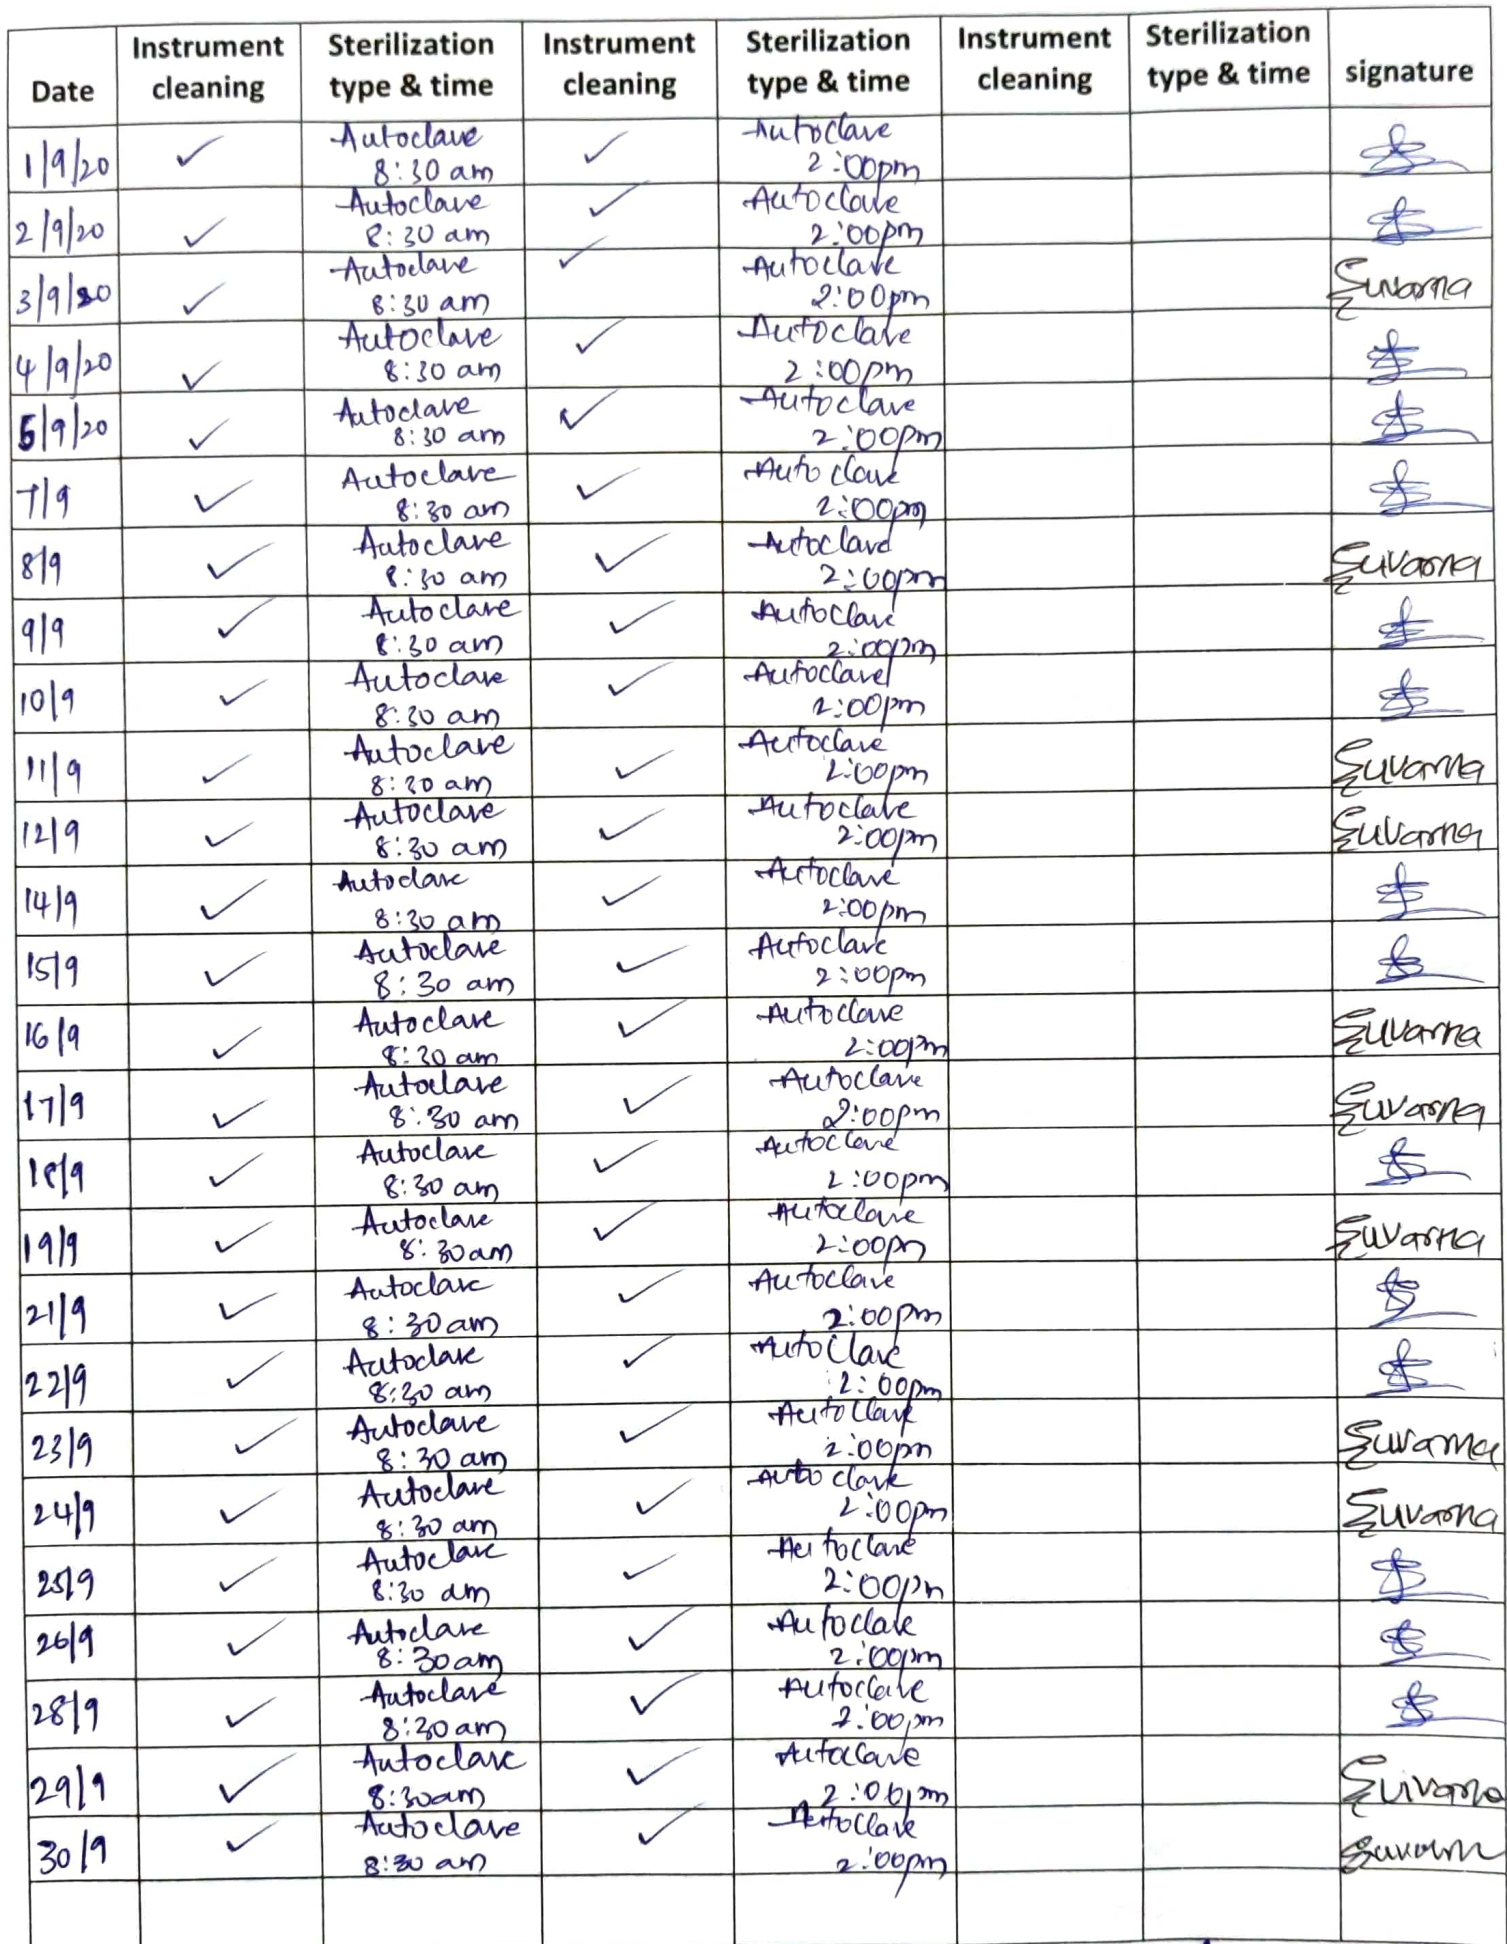 Date | Instrument cleaning | Sterilization type & time | Instrument cleaning | Sterilization type & time | Instrument cleaning | Sterilization type & time | signature
1/9/20 | ✓ | Autoclave 8:30 am | ✓ | Autoclave 2:00pm
2/9/20 | ✓ | Autoclave 8:30 am | ✓ | Autoclave 2:00pm
3/9/20 | ✓ | Autoclave 8:30 am | ✓ | Autoclave 2:00pm | | | Suvarna
4/9/20 | ✓ | Autoclave 8:30 am | ✓ | Autoclave 2:00pm
5/9/20 | ✓ | Autoclave 8:30 am | ✓ | Autoclave 2:00pm
7/9 | ✓ | Autoclave 8:30 am | ✓ | Autoclave 2:00pm
8/9 | ✓ | Autoclave 8:30 am | ✓ | Autoclave 2:00pm | | | Suvarna
9/9 | ✓ | Autoclave 8:30 am | ✓ | Autoclave 2:00pm
10/9 | ✓ | Autoclave 8:30 am | ✓ | Autoclave 2:00pm
11/9 | ✓ | Autoclave 8:30 am | ✓ | Autoclave 2:00pm | | | Suvarna
12/9 | ✓ | Autoclave 8:30 am | ✓ | Autoclave 2:00pm | | | Suvarna
14/9 | ✓ | Autoclave 8:30 am | ✓ | Autoclave 2:00pm
15/9 | ✓ | Autoclave 8:30 am | ✓ | Autoclave 2:00pm
16/9 | ✓ | Autoclave 8:30 am | ✓ | Autoclave 2:00pm | | | Suvarna
17/9 | ✓ | Autoclave 8:30 am | ✓ | Autoclave 2:00pm | | | Suvarna
18/9 | ✓ | Autoclave 8:30 am | ✓ | Autoclave 2:00pm
19/9 | ✓ | Autoclave 8:30am | ✓ | Autoclave 2:00pm | | | Suvarna
21/9 | ✓ | Autoclave 8:30am | ✓ | Autoclave 2:00pm
22/9 | ✓ | Autoclave 8:30 am | ✓ | Autoclave 2:00pm
23/9 | ✓ | Autoclave 8:30 am | ✓ | Autoclave 2:00pm | | | Suvarna
24/9 | ✓ | Autoclave 8:30 am | ✓ | Autoclave 2:00pm | | | Suvarna
25/9 | ✓ | Autoclave 8:30 am | ✓ | Autoclave 2:00pm
26/9 | ✓ | Autoclave 8:30am | ✓ | Autoclave 2:00pm
28/9 | ✓ | Autoclave 8:30am | ✓ | Autoclave 2:00pm
29/9 | ✓ | Autoclave 8:30am | ✓ | Autoclave 2:00pm | | | Suvarna
30/9 | ✓ | Autoclave 8:30 am | ✓ | Autoclave 2:00pm | | | Suvarna